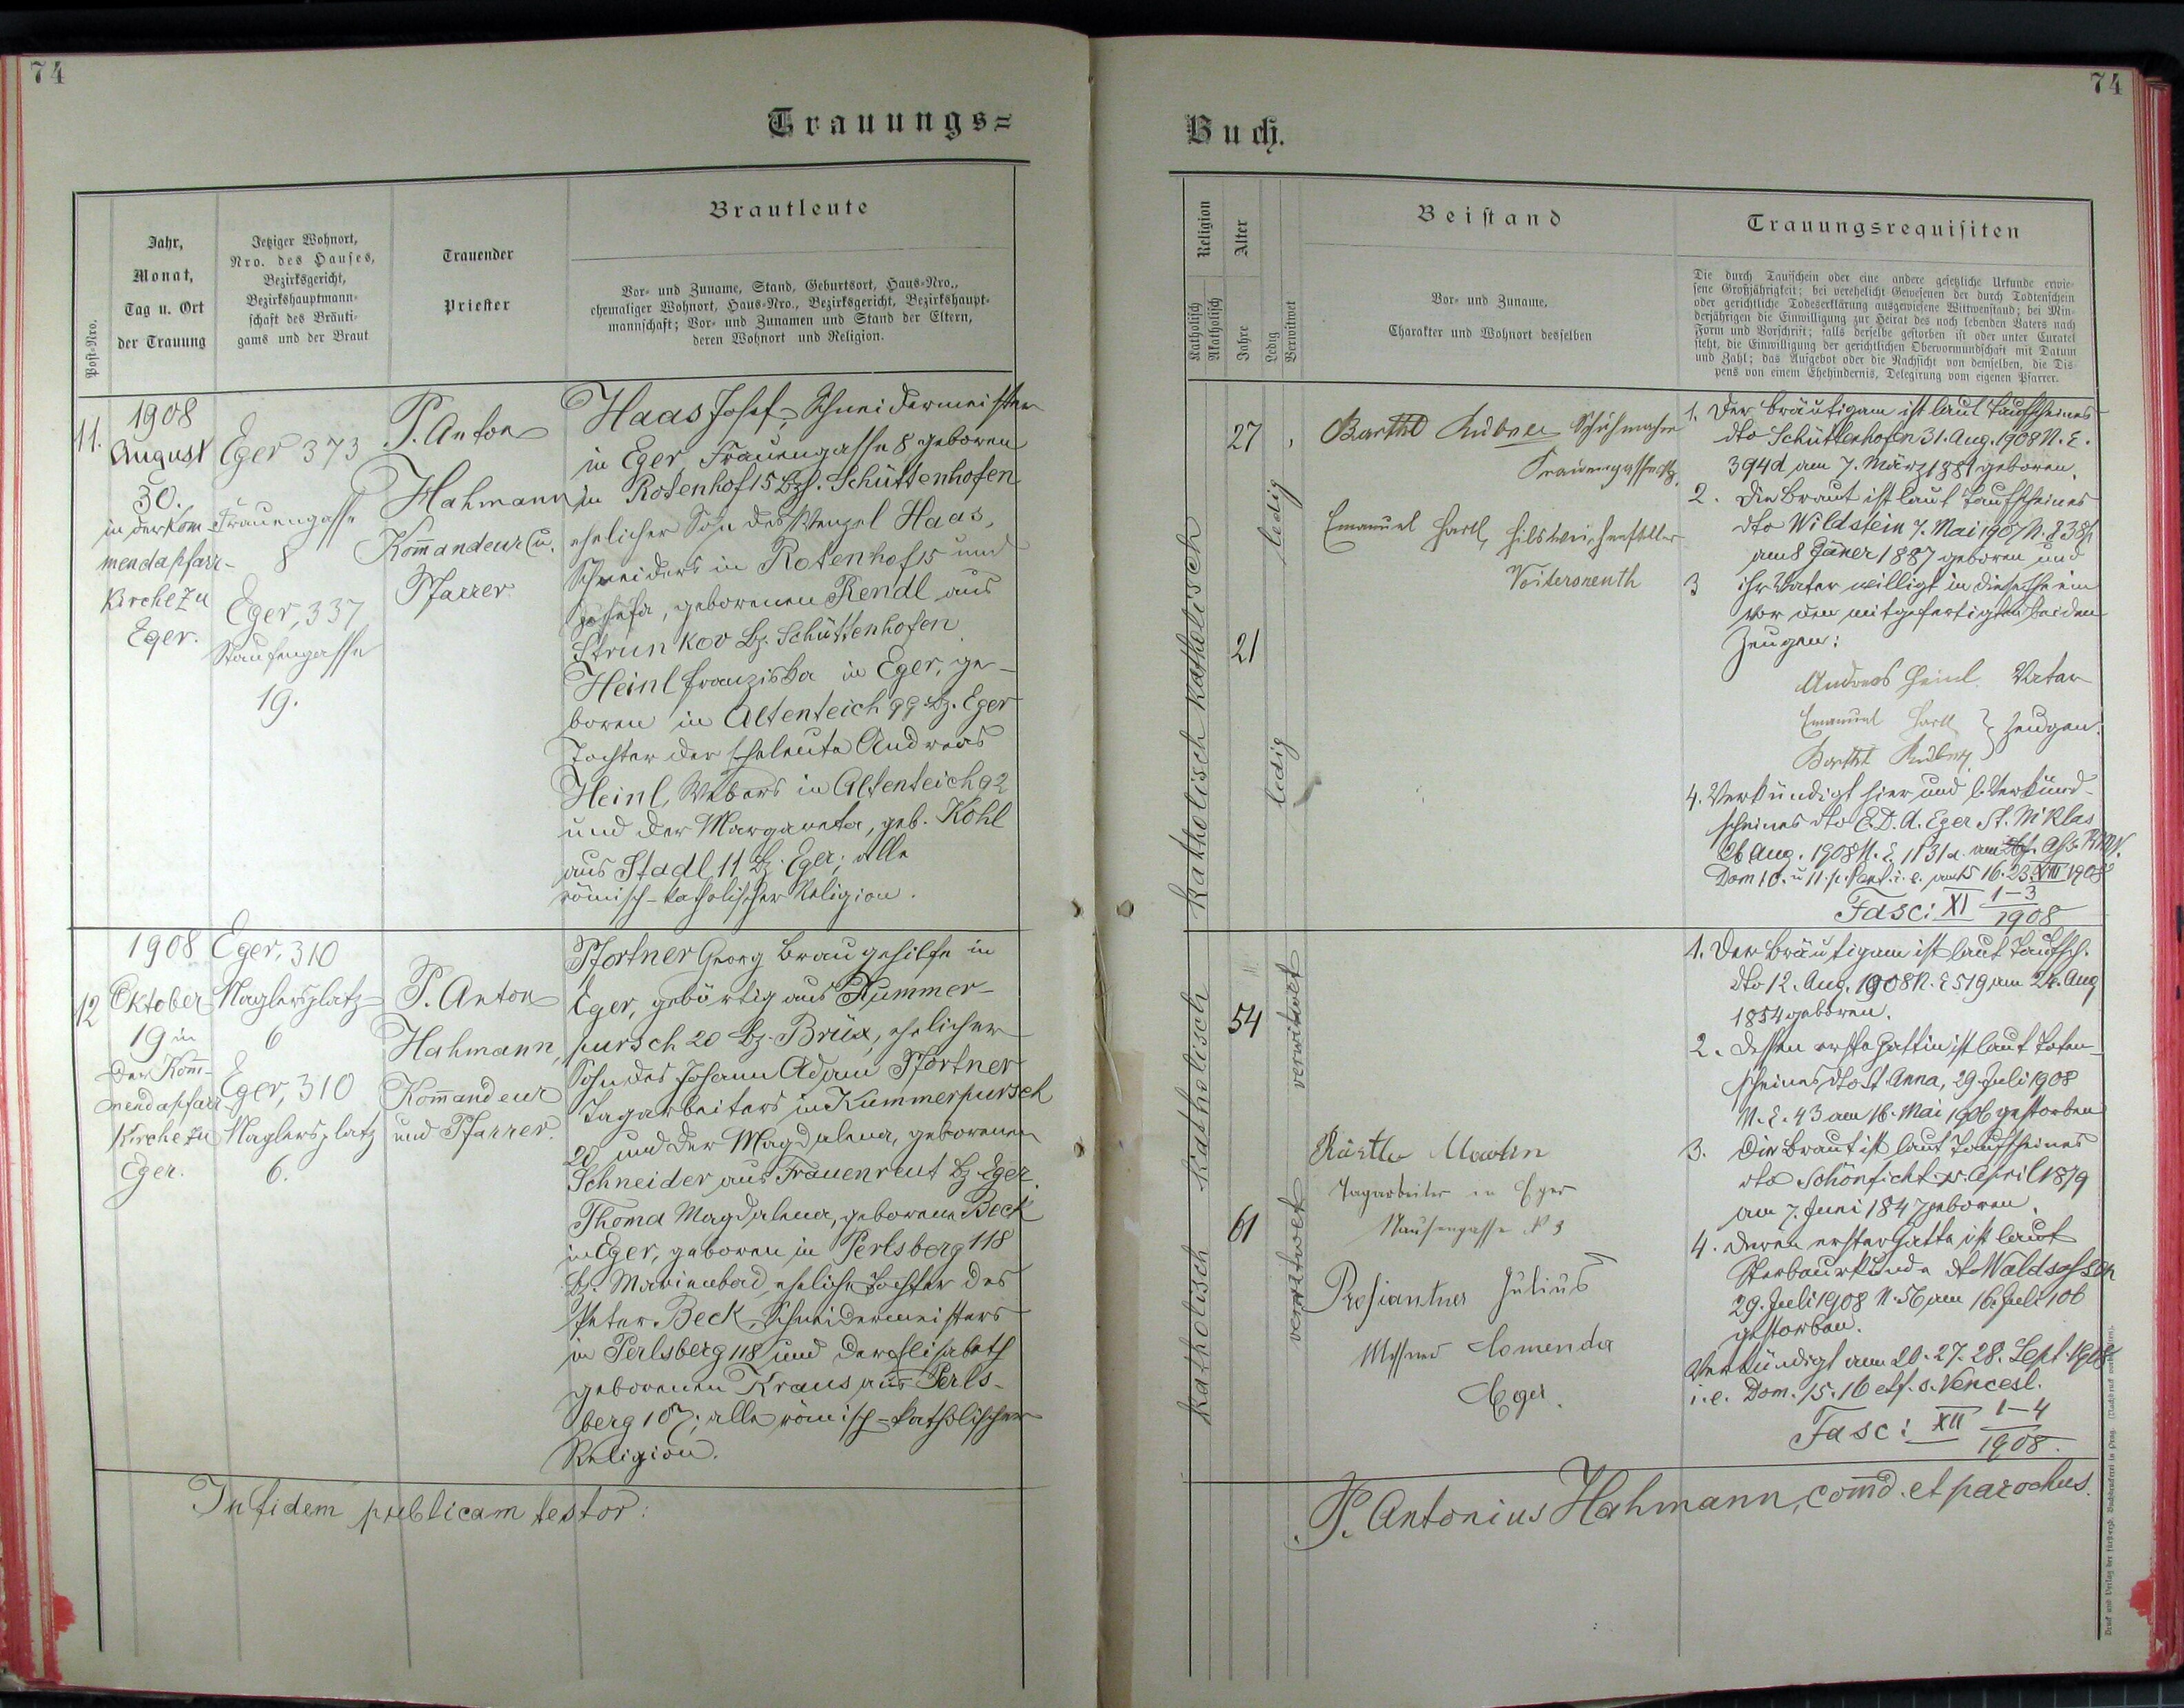 74
74
Trauungs=
Buch.
Post-Nro.
Jahr,
Monat,
Tag u. Ort
der Trauung
Jetziger Wohnort,
Nro. des Hauses,
Bezirksgericht,
Bezirkshauptmann-
schaft des Bräuti-
gams und der Braut
Trauender
Priester
Brautleute
Vor- und Zuname, Stand, Geburtsort, Haus-Nro.,
ehemaliger Wohnort, Haus-Nro., Bezirksgericht, Bezirkshaupt-
mannschaft; Vor- und Zunamen und Stand der Eltern,
deren Wohnort und Religion.
Religion
Katholisch
Akatholisch
Alter
Jahre
Ledig
Verwitwet
Beistand
Vor- und Zuname,
Charakter und Wohnort desselben
Trauungsrequisiten
Die durch Taufschein oder eine andere gesetzliche Urkunde erwie-
sene Großjährigkeit; bei verehelicht Gewesenen der durch Todtenschein
oder gerichtliche Todeserklärung ausgewiesene Witwenstand; bei Min-
derjährigen die Einwilligung zur Heirat des noch lebenden Vaters nach
Form und Vorschrift; falls derselbe gestorben ist oder unter Curatel
steht, die Einwilligung der gerichtlichen Obervormundschaft mit Datum
und Zahl; das Aufgebot oder die Nachsicht von demselben, die Dis-
pens von einem Ehehindernis, Delegirung vom eigenen Pfarrer.
11.
1908
August
30.
in der Kom-
mendapfarr-
kirche zu
Eger.
Eger 373
Frauengasse
8
Eger, 337
19.
P. Anton
Hahmann
Kom̄andeur u.
Pfarrer
Haas Josef, Schneidermeister
in Eger, Frauengasse 8 geboren
in Rotenhof 15 Bz. Schüttenhofen
ehelicher Sohn des Wenzel Haas,
Schneiders in Rotenhof 15 und
Josefa, geborenen Rendl aus
Strunkov Bz. Schüttenhofen
Heinl Franziska in Eger, ge-
boren in Altenteich 99 Bz. Eger
Tochter der Eheleute Andreas
Heinl, Webers in Altenteich 92
und der Margareta, geb. Köhl
aus Stadl 11 Bz. Eger; alle
römisch-katholischer Religion.
27
ledig
21
ledig
katholisch
katholisch
Barthl Schuhmacher
Frauengasse
Emanuel Hartl,
Voitersreuth
1. Der Bräutigam ist laut Taufscheines
dto Schüttenhofen 31. Aug. 1908 N. E.
394d am 7. März 1881 geboren.
2. Die Braut ist laut Taufscheines
dto Wildstein 7. Mai 1907 N.
am 8 Jäner 1887 geboren und
3 ihr Vater willigt in diese Ehe ein
vor den mitgefertigten beiden
Zeugen:
Andreas Heinl Vater
Emanuel Hartl } Zeugen.
Barthl
4. Verkündigt hier und l. Verkünd-
scheines dto E.D.A. Eger St. Niklas
26 Aug. 1908 N. E. 1131
Dom 10. u 11. p. Pent. i. e. 16. 23. VIII 1908
Fasc: XI 1-3
1908
12
1908
Oktober
19 in
der Kom̄-
mendapfarr-
kirche zu
Eger.
Eger, 310
Naglersplatz
6
Eger, 310
Naglersplatz
6.
P. Anton
Hahmann,
Kom̄andeur
und Pfarrer.
Pfortner Georg Braugehilfe in
Eger, gebürtig aus Kummer-
pursch 20 Bz. Brüx, ehelicher
Sohn des Johann Adam Pfortner
Tagarbeiters in Kummerpursch
20 und der Magdalena, geborenen
Schneider aus Frauenreut Bz Eger.
Thoma Magdalena, geborene Beck
in Eger, geboren in Perlsberg 118
Bz. Marienbad, eheliche Tochter des
Peter Beck, Schneidermeisters
in Perlsberg 118 und der Elisabeth
geborenen Kraus aus Perls-
berg 107; alle römisch-katholischer
Religion.
54
verwitwet
61
verwitwet
katholisch
katholisch
Martin
Tagarbeiter in Eger
No 3
Julius
Messner Comenda
Eger.
1. Der Bräutigam ist laut Taufsch.
dto 12. Aug. 1908 N. E 519 am 24. Aug
1854 geboren.
2. Dessen erste Gattin ist laut Toten-
scheines dto St. Anna, 29. Juli 1908
N. E. 43 am 16. Mai 1906 gestorben
3. Die Braut ist laut Taufscheines
dto Schönficht 15. April 1879
am 7. Juni 1847 geboren.
4. Deren erster Gatte ist laut
Sterbeurkunde dto Waldsassen
29. Juli 1908 N. 56 am 16. Juli 106
gestorben.
Verkündigt am 20. 27. 28. Sept. 1908
i. e. Dom. 15. 16 et f. s. Vencesl.
Fasc: XII 1-4
1908.
In fidem publicam testor:
P. Antonius Hahmann, com̄d. et parochus.